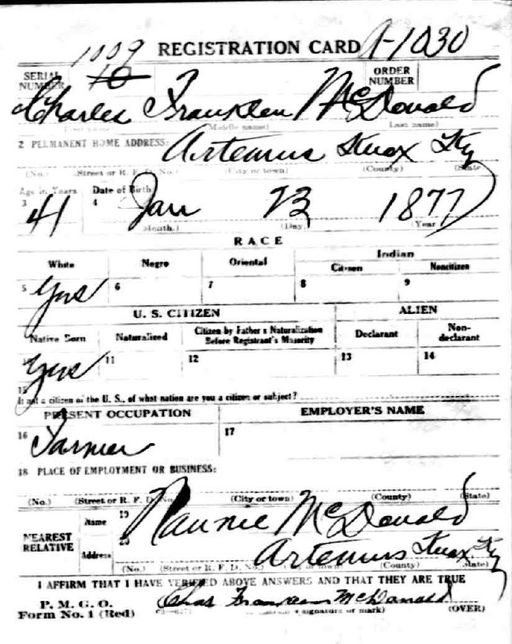 1009 REGISTRATION CARD A-1030
SERIAL NUMBER 10 ORDER NUMBER
Charles Franklen McDonald
(Middle name) Last name)
2 PERMANENT HOME ADDRESS: Artemus Knox Ky
(No.) (Street or R. F. D. No.) (City or town) (County) (State)
Age in Years Date of Birth
3 41 4 Jan 23 1877
(Month.) (Day.) (Year.)
RACE
White Negro Oriental Indian
Citizen Noncitizen
5 Yes 6 7 8 9
U. S. CITIZEN ALIEN
Native Born Naturalized Citizen by Father's Naturalization Before Registrant's Majority Declarant Non-declarant
10 Yes 11 12 13 14
15
If not a citizen of the U. S., of what nation are you a citizen or subject?
PRESENT OCCUPATION EMPLOYER'S NAME
16 Farmer 17
18 PLACE OF EMPLOYMENT OR BUSINESS:
(No.) (Street or R. F. D. No.) (City or town) (County) (State)
NEAREST RELATIVE Name 19 Nannie McDonald
Address 20 Artemus Knox Ky
(No.) (Street or R. F. D. No.) (City or town) (State)
I AFFIRM THAT I HAVE VERIFIED ABOVE ANSWERS AND THAT THEY ARE TRUE
P. M. G. O.
Form No. 1 (Red) Chas Franklen McDonald (OVER)
signature or mark)